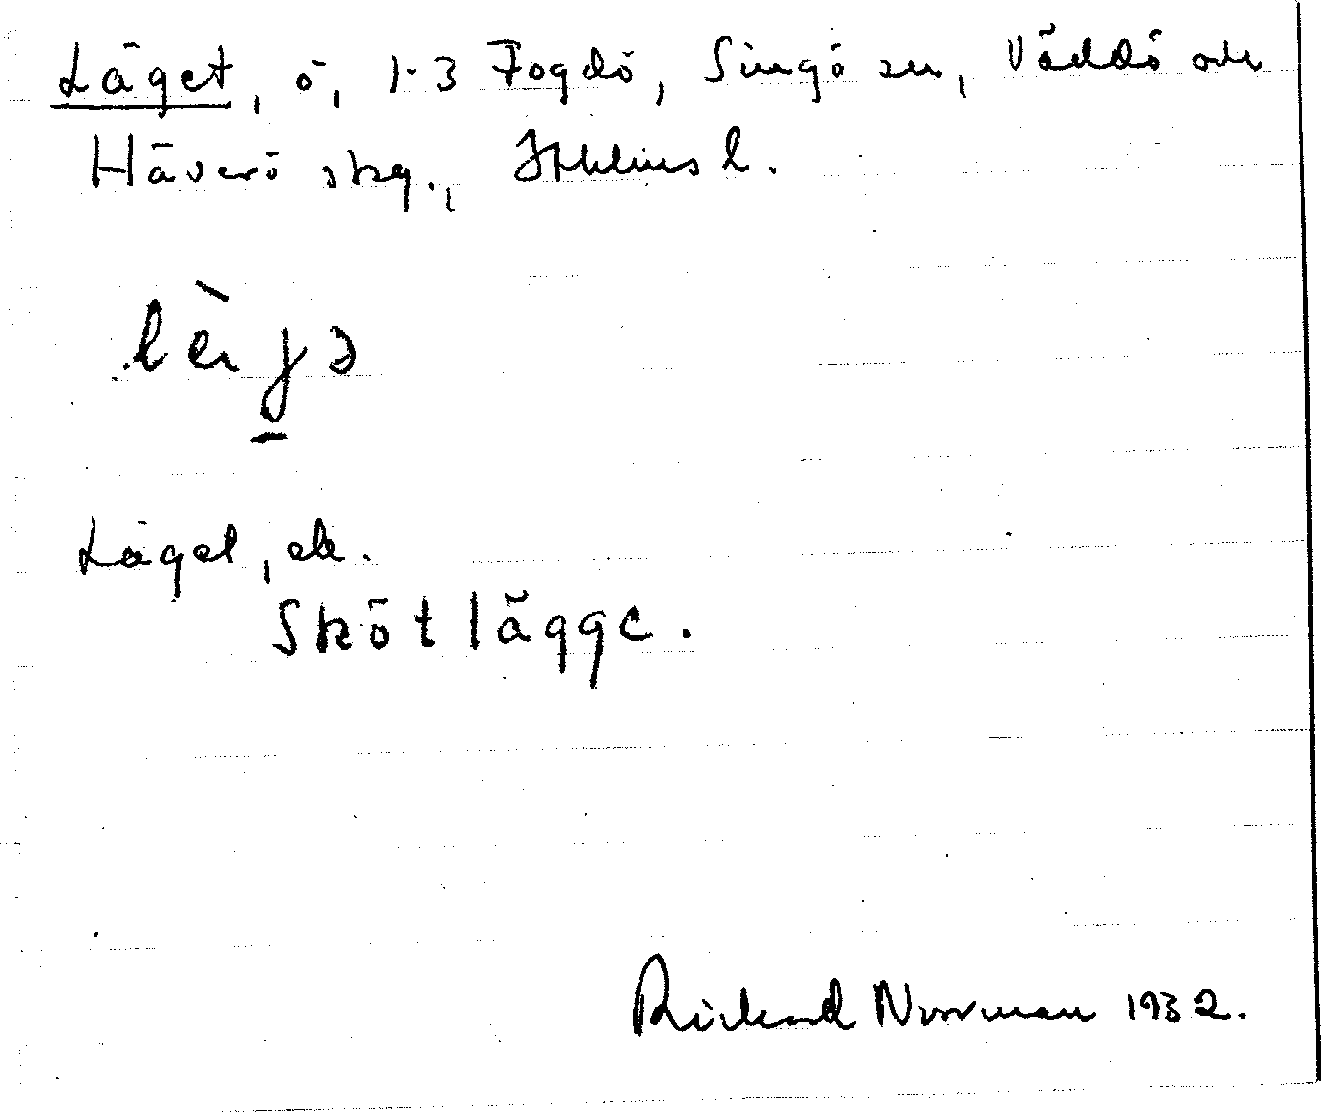 Läget, ö, 1-3 Fogdö, Singö sn, Väddö och
Häverö skg., Sthlms l.
Läget, ek.
Skötlägge.
Rickard Norrman 1932.